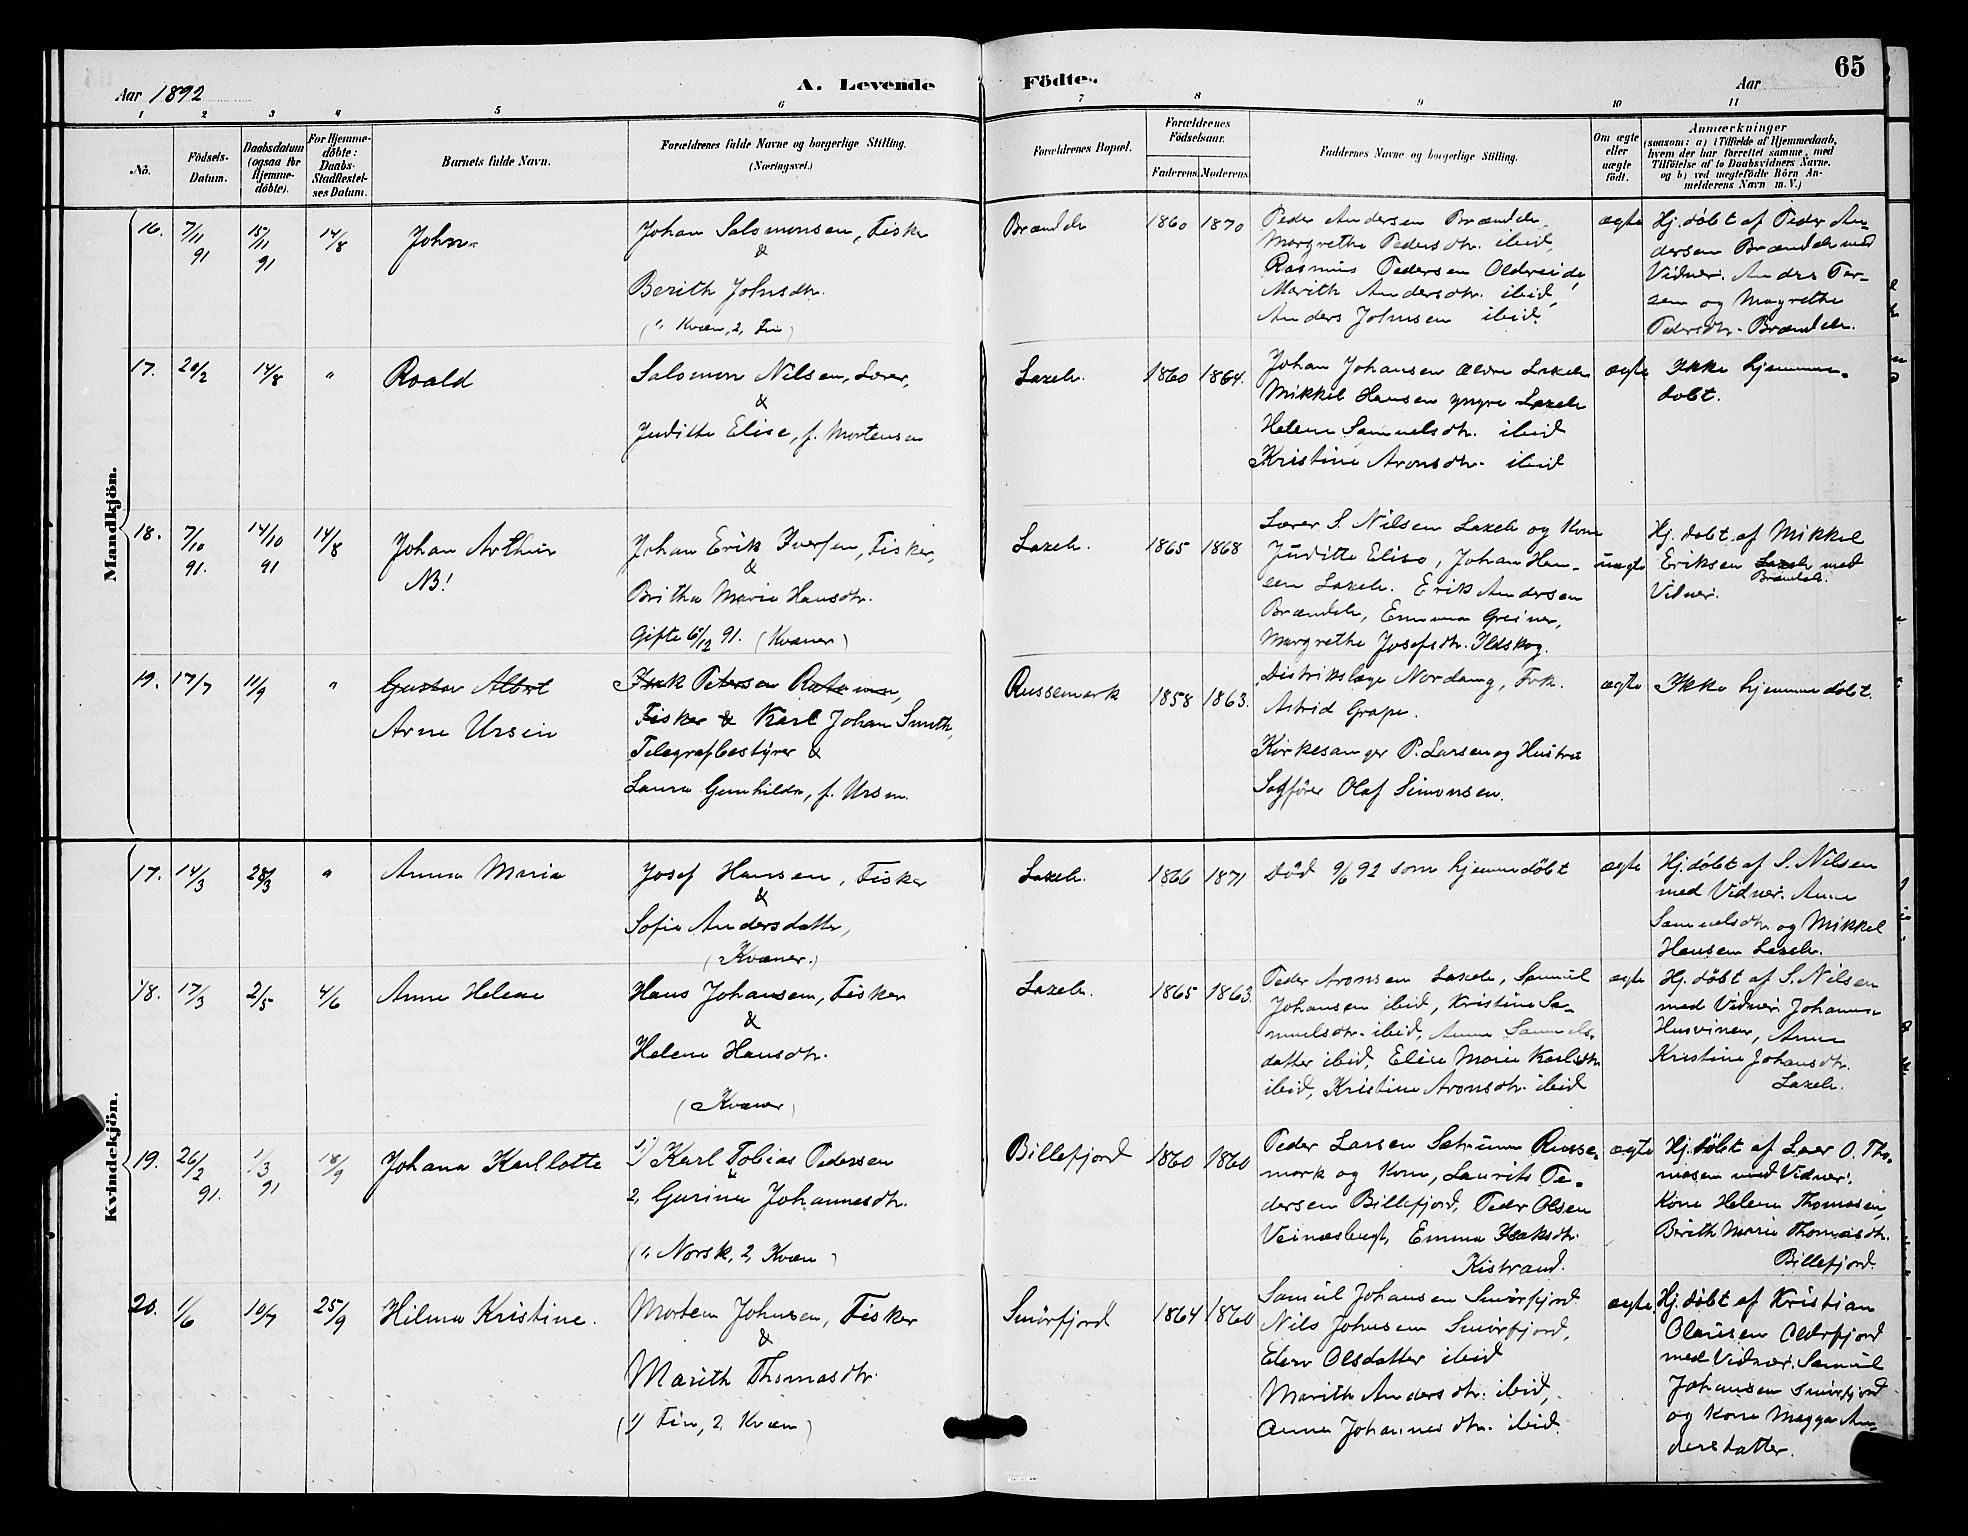 65
Aar 1892
A. Levende
Födte.
Aar
1 2 3 4 5 6 7 8 9 10 11
No.
Födsels-
Datum.
Daabsdatum
(ogsaa for
Hjemme-
döbte).
For Hjemme-
döbte:
Daabs-
Stadfæstel-
ses Datum.
Barnets fulde Navn.
Forældrenes fulde Navne og borgerlige Stilling.
(Næringsvei.)
Forældrenes Bopæl.
Forældrenes
Födselsaar.
Faderens.
Moderens.
Faddernes Navne og borgerlige Stilling.
Om ægte
eller
uægte
födt.
Anmærkninger
(saasom: a) i Tilfælde af Hjemmedaab,
hvem der har forrettet samme, med
Tilföielse af to Daabsvidners Navne,
og b) ved uægtefödte Börn An-
melderens Navn m. V.)
Mandkjön.
16.
7/11
91
15/11
91
14/8
John
Johan Salomonsen, Fisker
&
Berith Johnsdtr.
(1, Kvæn, 2, Fin)
Brændelv
1860
1870
Peder Andersen Brændelv,
Margrethe Pedersdtr. ibid,
Rasmus Pedersen Oldereide,
Marith Andersdtr. ibid,
Anders Johnsen ibid.
ægte
Hj. döbt af Peder An-
dersen Brændelv med
Vidner. Anders Per-
sen og Magrethe
Pedersdtr. Brændelv.
17.
20/2
14/8
"
Roald
Salomon Nilsen, Lærer,
&
Juditte Elise, f. Mortensen
Laxelv.
1860
1864.
Johan Johansen ældre Laxelv
Mikkel Hansen yngre Laxelv
Helene Samuelsdtr. ibid
Kristine Aronsdtr. ibid
ægte
Ikke hjemme-
dobt.
18.
7/10
91.
14/10
91
14/8
Johan Arthur
NB!
Johan Erik Iversen, Fisker,
&
Britha Maria Hansdtr.
Gifte 6/12 91. (Kvæner)
Laxelv.
1865
1868
Lærer S. Nilsen Laxelv og Kone
Juditte Elise, Johan Han-
sen Laxelv. Erik Andersen
Brændelv, Emma Greiner,
Margrethe Josefsdtr. Ildskog.
uægte
Hj. dobt af Mikkel
Eriksen Laxelv med
Brændelv.
Vidner.
19.
17/7
11/9
"
Gustav Albert
Arne Ursin
Isak Petersen
Fisker & Karl Johan Smith,
Telegrafbestyrer &
Laura Gunhilda, f. Ursin.
Russemark
1858
1863.
Distriktslæge Nordang, Frk.
Astrid Grape.
Kirkesanger P. Larsen og Hustru
Sagfører Olaf Simonsen.
ægte
Ikke hjemmedöbt.
Kvindekjön.
17.
14/3
28/3
"
Anna Maria
Josef Hansen, Fisker
&
Sofie Andersdatter,
(Kvæner.)
Laxelv.
1866
1871
Död 9/6 92 som hjemmedöbt
ægte
Hj. döbt af S. Nilsen
med Vidner. Anne
Samuelsdtr og Mikkel
Hansen Laxelv.
18.
17/3
2/5
4/6
Anne Helene
Hans Johansen, Fisker
&
Helene Hansdtr.
(Kvæner)
Laxelv.
1865
1863.
Peder Aronsen Laxelv, Samuel
Johansen ibid, Kristine Sa-
muelsdtr. ibid, Anne Samuels-
datter ibid, Elise Marie Karlsdtr
ibid, Kristine Aronsdtr. ibid
ægte
Hj. döbt af S. Nilsen
med Vidner Johanna
Husvinen, Anna
Kristine Johansdtr.
Laxelv.
19.
26/2
91.
1/3
91
18/9
Johana Karllotte
1) Karl Tobias Pedersen
&
2, Gurina Johannesdtr.
(1, Norsk, 2, Kvæn)
Billefjord
1860
1860
Peder Larsen Russe-
mark og Kone, Laurits Pe-
dersen Billefjord, Peder Olsen
Veinesbugt, Emma Isaksdtr.
Kistrand.
ægte
Hj. döbt af Lærer O. Tho-
masen med Vidner.
Kone Helene Thomasen,
Berith Marie Thomasdtr.
Billefjord.
20.
1/6
10/7
25/9
Hilma Kristine.
Morten Johnsen, Fisker
&
Marith Thomasdtr.
(1) Fin, 2, Kvæn)
Smörfjord
1864
1860
Samuel Johansen Smörfjord
Nils Johnsen Smörfjord,
Elen Olsdatter ibid
Marith Andersdtr. ibid,
Anna Johannesdtr. ibid.
ægte.
Hj. döbt af Kristian
Olausen Olderfjord
med Vidner. Samuel
Johansen Smörfjord
og Kone Magga An-
dersdatter.